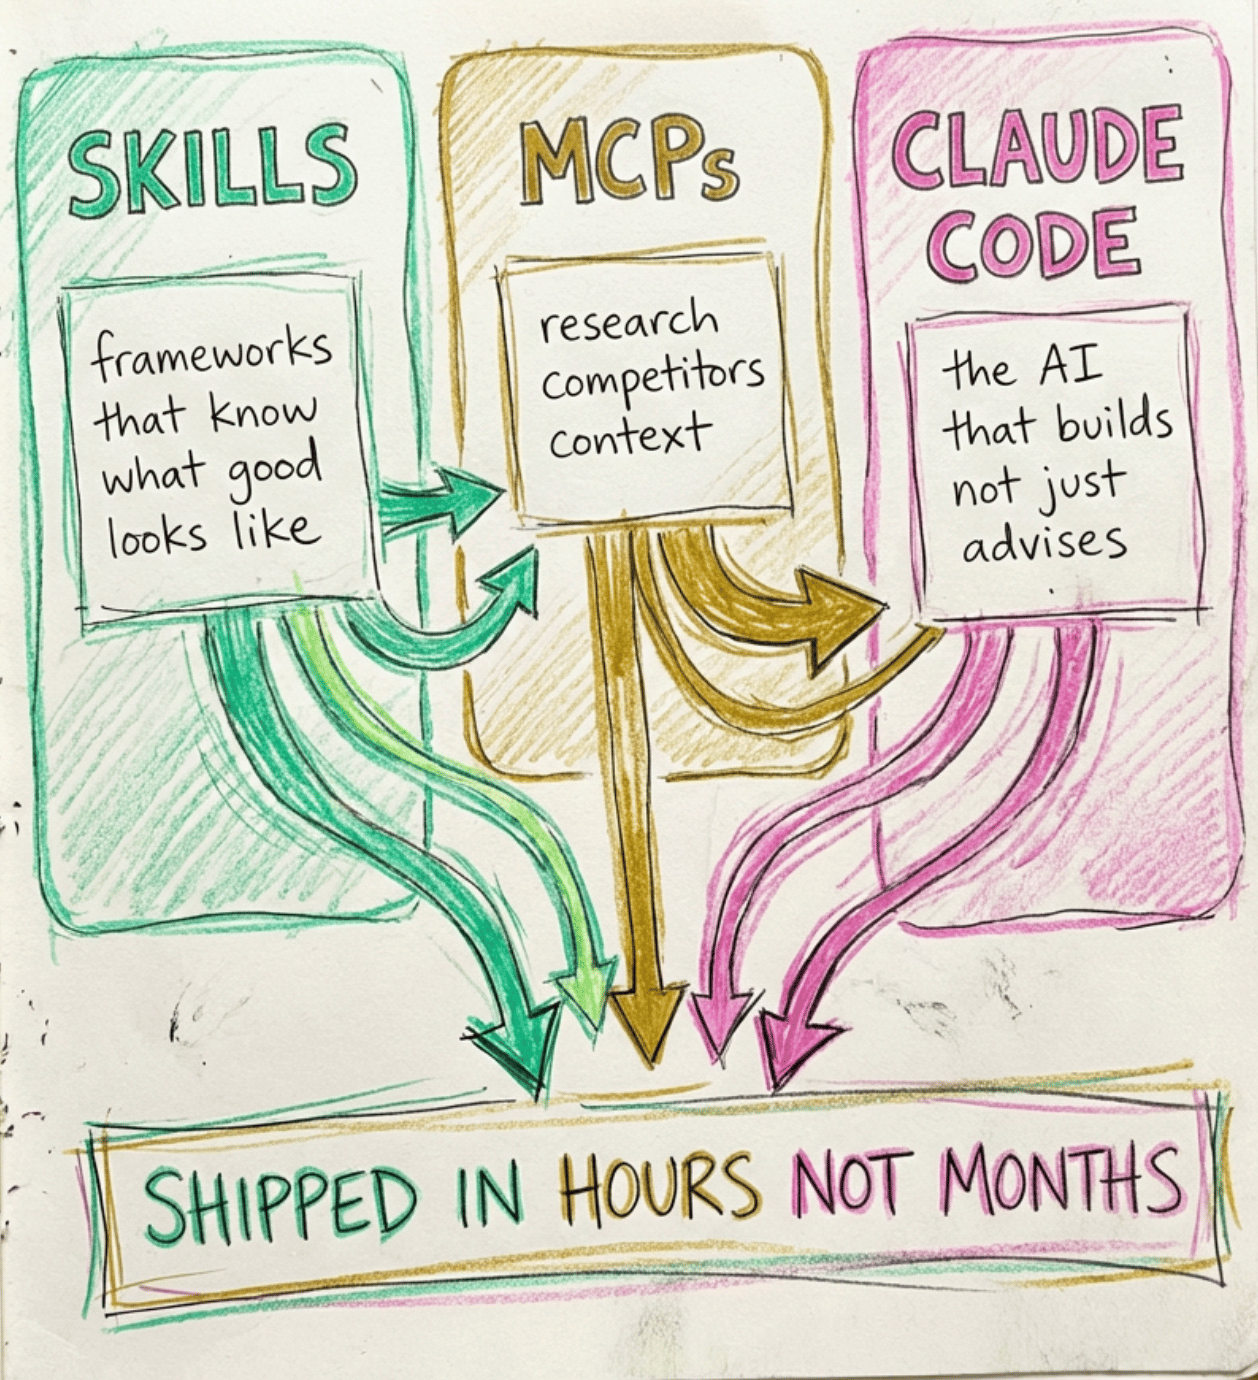 SKILLS
frameworks
that know
what good
looks like
MCPs
research
competitors
context
CLAUDE
CODE
the AI
that builds
not just
advises
SHIPPED IN HOURS NOT MONTHS